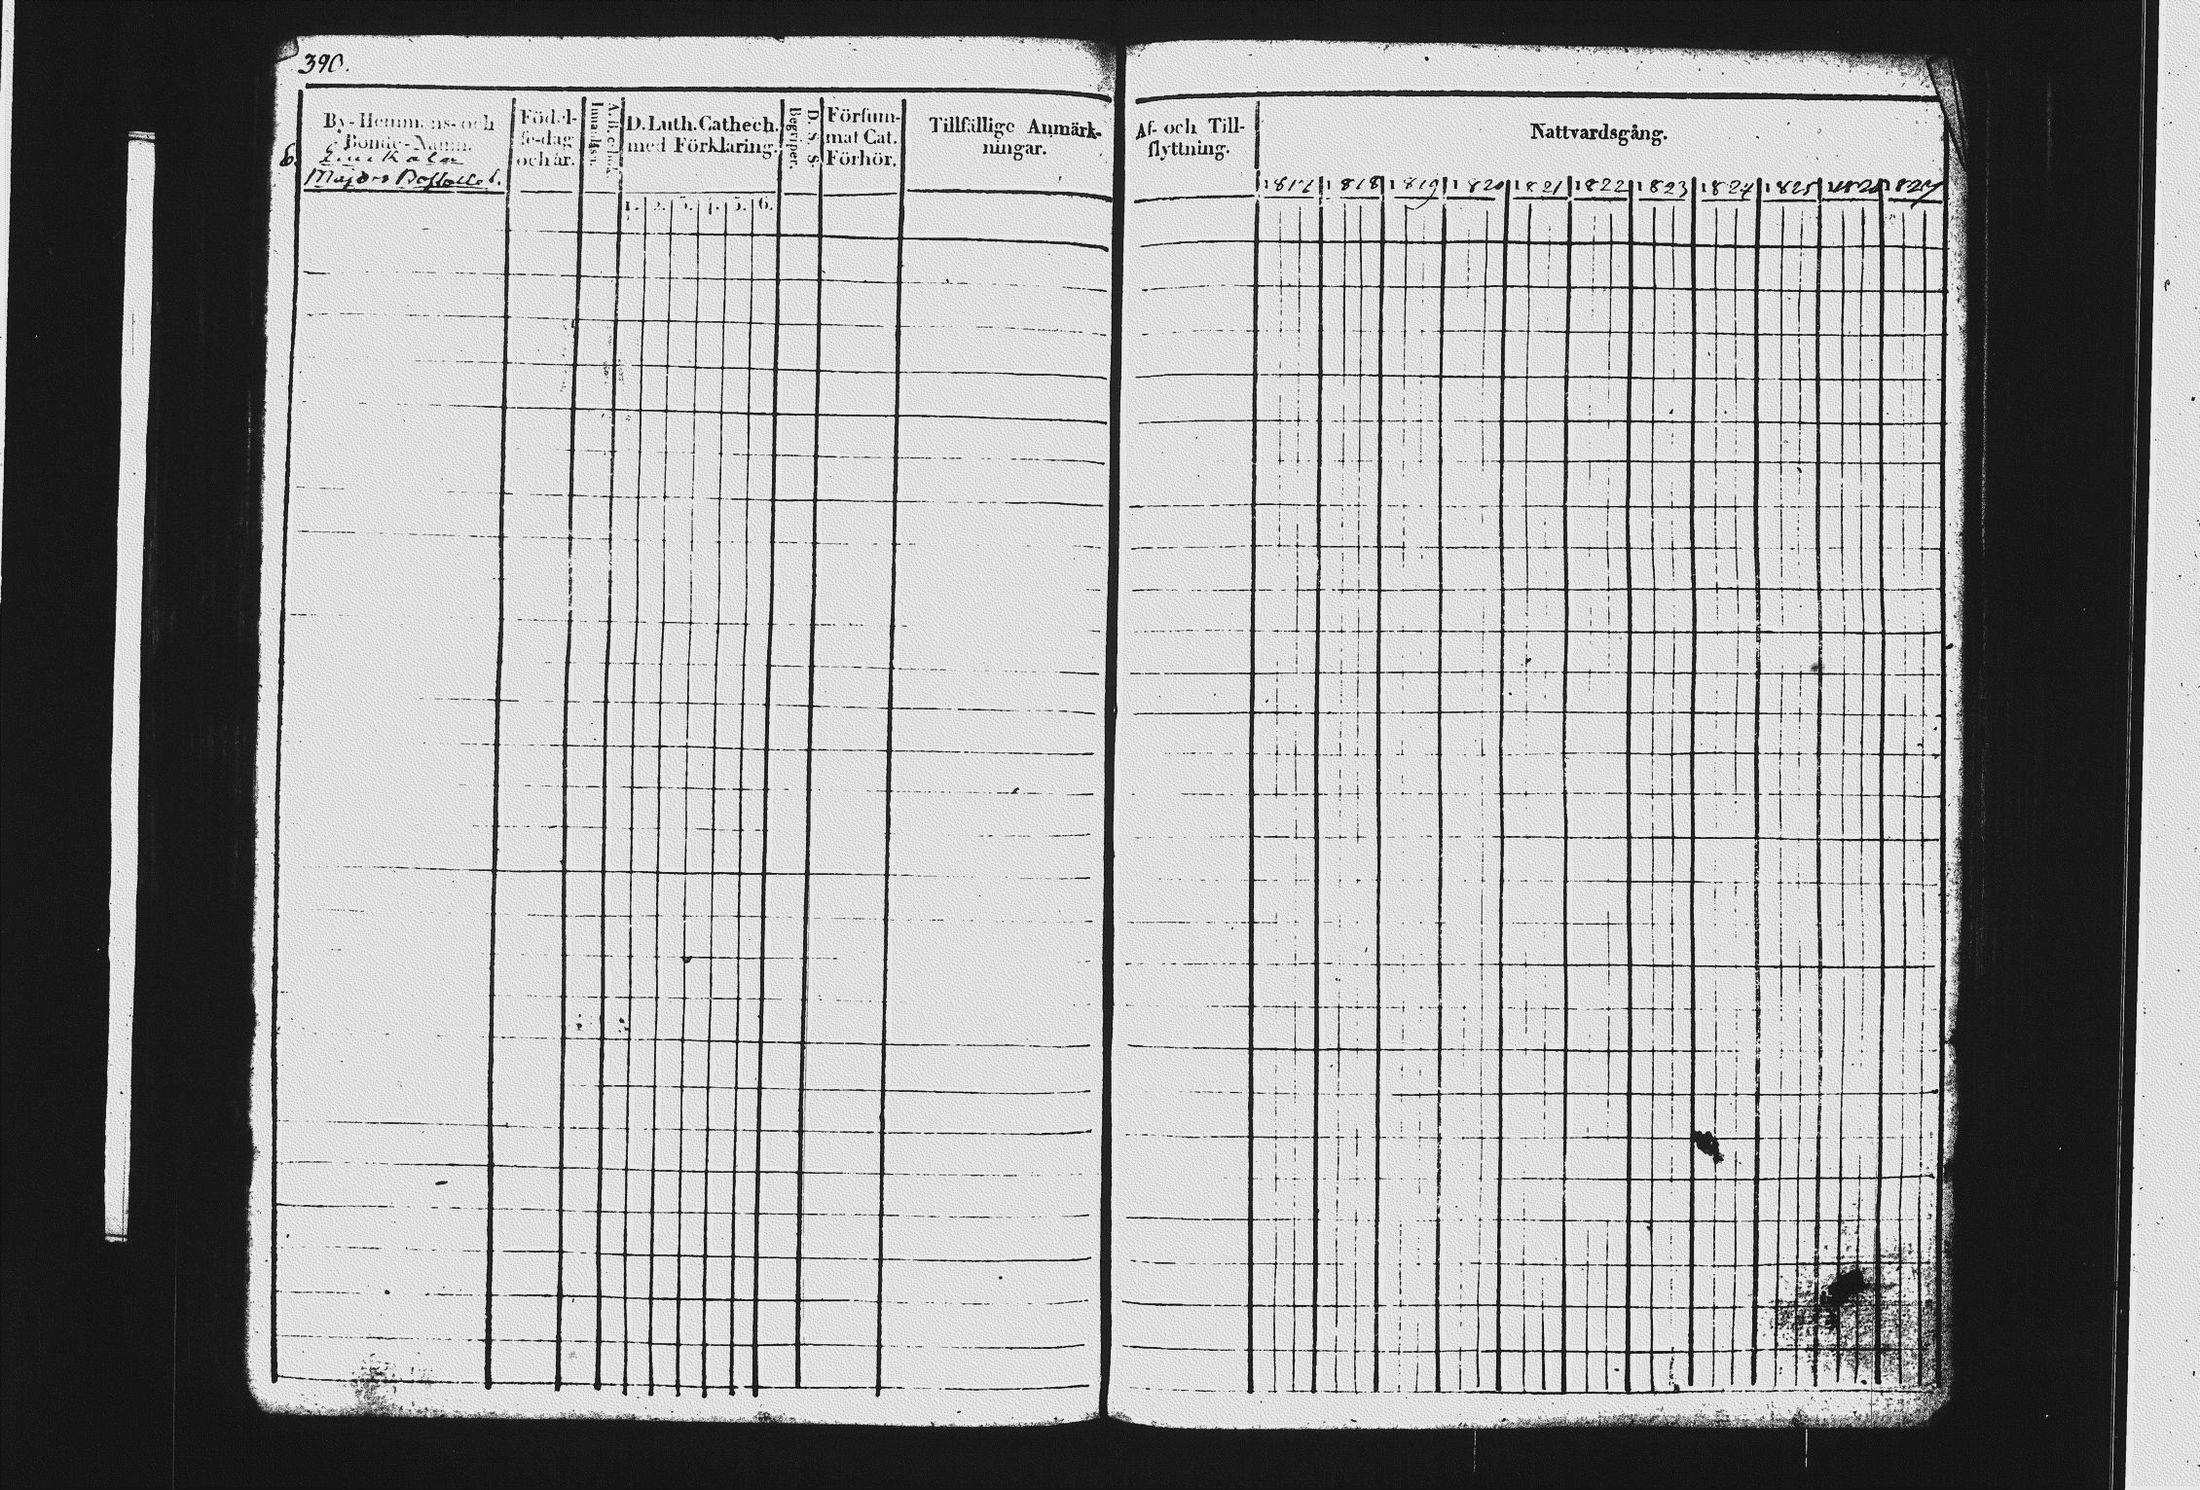 390.
By-Hemmans-och
Bonde-Namn.
6.
Majors Bostället.
Födel-
se-dag
och år.
Innanläsn.
D. Luth. Cathech.
med Förklaring.
1. 2. 3. 4. 5. 6.
D. s. S.
Begriper.
Försum-
mat Cat.
Förhör.
Tillfällige Anmärk-
ningar.
Af- och Till-
flyttning.
Nattvardsgång.
1817 1818 1819 1820 1821 1822 1823 1824 1825 1826 1827